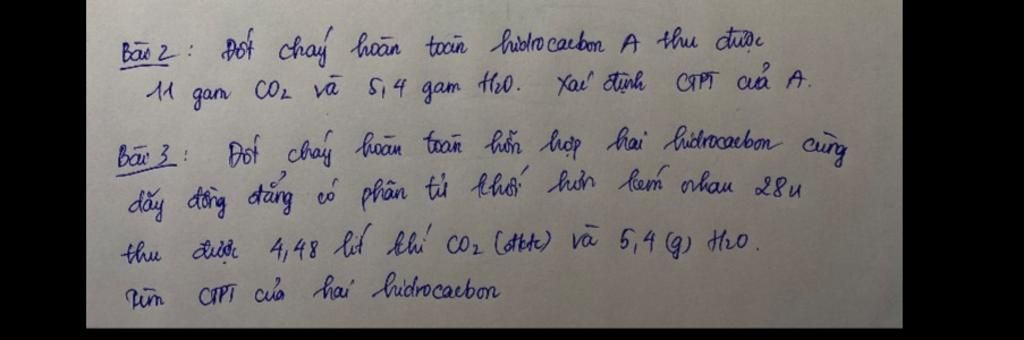 Bài 2 : Đốt cháy hoàn toàn hidrocacbon A thu được
11 gam CO2 và 5,4 gam H2O. Xác định CTPT của A.
Bài 3 : Đốt cháy hoàn toàn hỗn hợp hai hidrocacbon cùng
dãy đồng đẳng có phân tử khối hơn kém nhau 28u
thu được 4,48 lít khí CO2 (đktc) và 5,4 (g) H2O.
Tìm CTPT của hai hidrocacbon